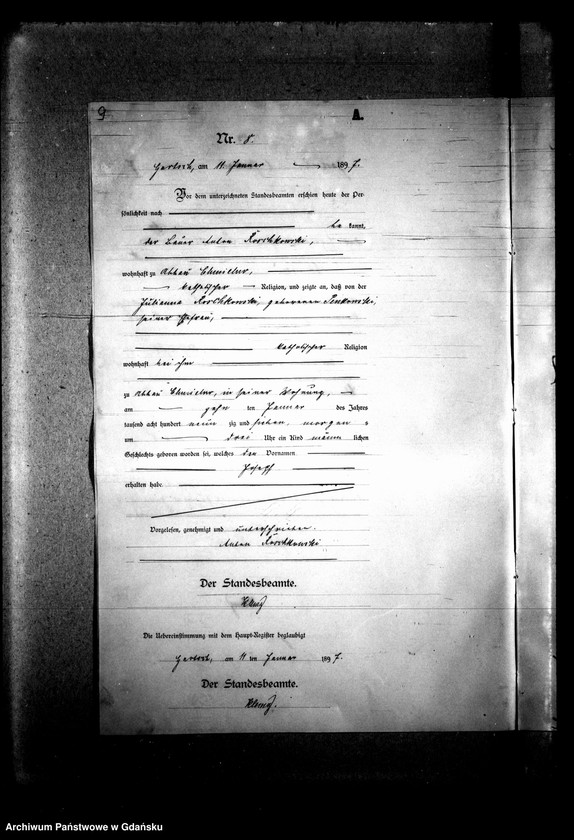 9
A.
Nr. 8.
am 11. Januar 1897.
Vor dem unterzeichneten Standesbeamten erschien heute der Per-
sönlichkeit nach
be kannt,
der Bauer Anton
wohnhaft zu Abbau
katholischer Religion, und zeigte an, daß von der
Julianna geborenen
seiner Ehefrau,
katholischer Religion
wohnhaft bei ihm
zu Abbau in seiner Wohnung,
am zehn ten Januar des Jahres
tausend acht hundert neun zig und sieben, morgen s
um drei Uhr ein Kind männ lichen
Geschlechts geboren worden sei, welches den Vornamen
Joseph
erhalten habe.
Vorgelesen, genehmigt und unterschrieben.
Anton
Der Standesbeamte.
Die Uebereinstimmung mit dem Haupt-Register beglaubigt
am 11 ten Januar 1897.
Der Standesbeamte.
Archiwum Państwowe w Gdańsku